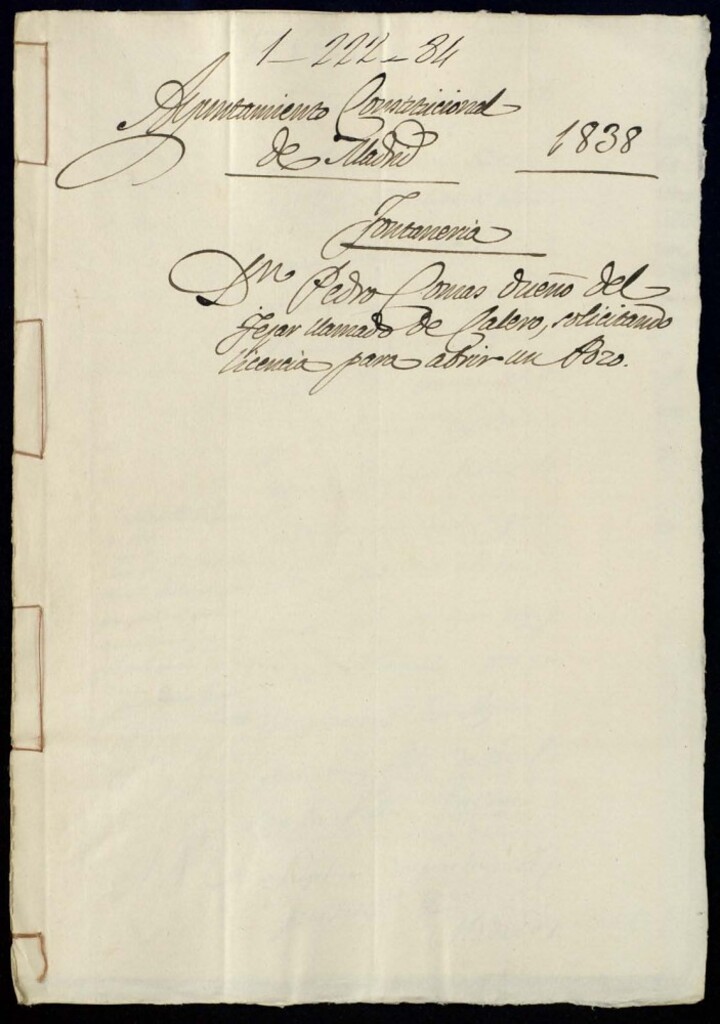 1-222-84
Ayuntamiento Constitucional
de Madrid
1838
Fontaneria
Dn Pedro Comas dueño del
Tejar llamado de Calero, solicitando
licencia para abrir un Pozo.